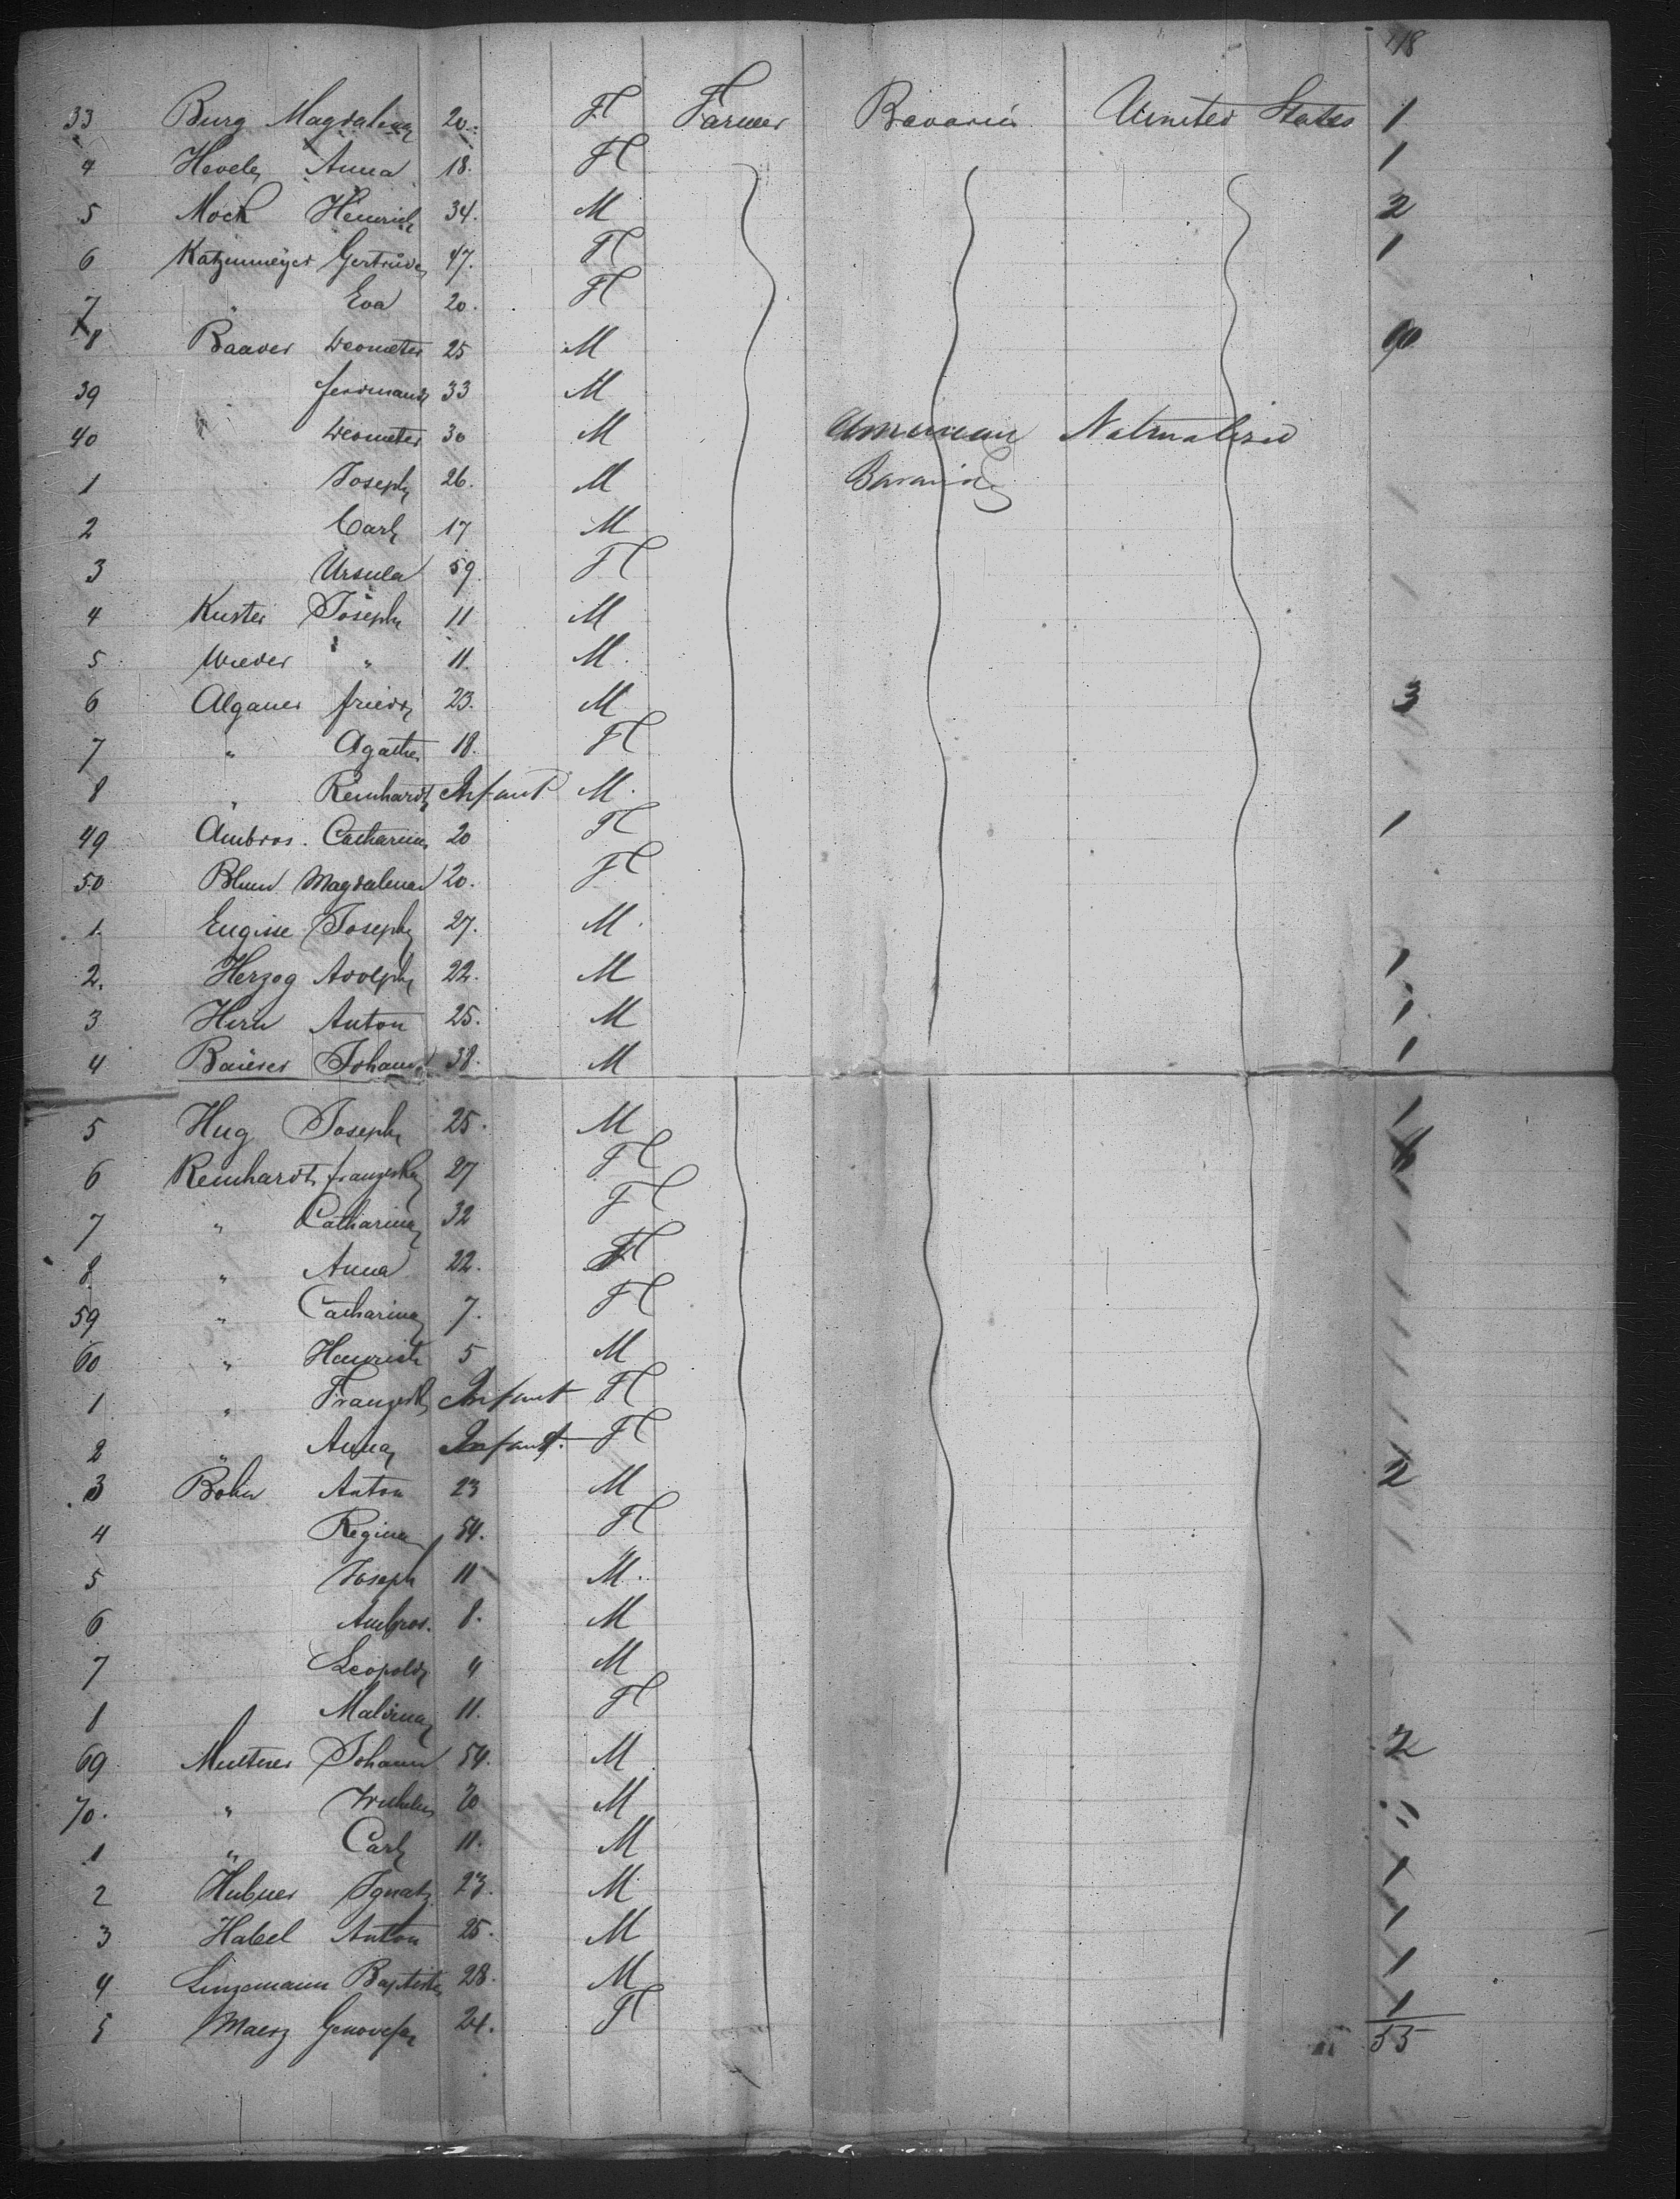 118
33 Burg Magdalena 20. F Farmer Bavaria United States 1
4 Anna 18. F 1
5 Mock Heinrich 34. M 2
6 Katzenmeyer Gertrude 47. F 1
7 " Eva 20. F
8 Baader 25 M
39 Ferdinand 33 M
40 30 M American Naturalized
1 Joseph 26. M Bavaria
2 Carl 17 M
3 Ursula 59. F
4 Kuster Joseph 11 M
5 Wieder " 11. M
6 Algauer Friedr 23. M 3
7 " Agathe 18. F
8 " Reinhardt Infant M
49 Ambros. Catharina 20 F 1
50 Magdalena 20. F
1. Joseph 27. M
2. Herzog Adolph 22. M 1
3 Hirn Anton 25. M 1
4 Johann 38. M 1
5 Hug Joseph 25. M 1
6 Reinhardt Franziska 27 F
7 " Catharina 32 F
8 " Anna 22. F
59 " Catharina 7. F
60 " Heinrich 5 M
1 " Franzisk Infant F
2 " Anna Infant. F
3 Anton 23 M 2
4 Regina 54. F
5 Joseph 11 M
6 Ambros. 8. M
7 Leopold 4 M
8 Malvina 11. F
69 Johann 54. M 2
70. " Wilhelm 20 M
1 " Carl 11. M
2 Hubner Ignatz 23. M 1
3 Habel Anton 25. M 1
4 Linzemann Baptiste 28. M 1
5 Maerz Genovefa 24. F 1
55